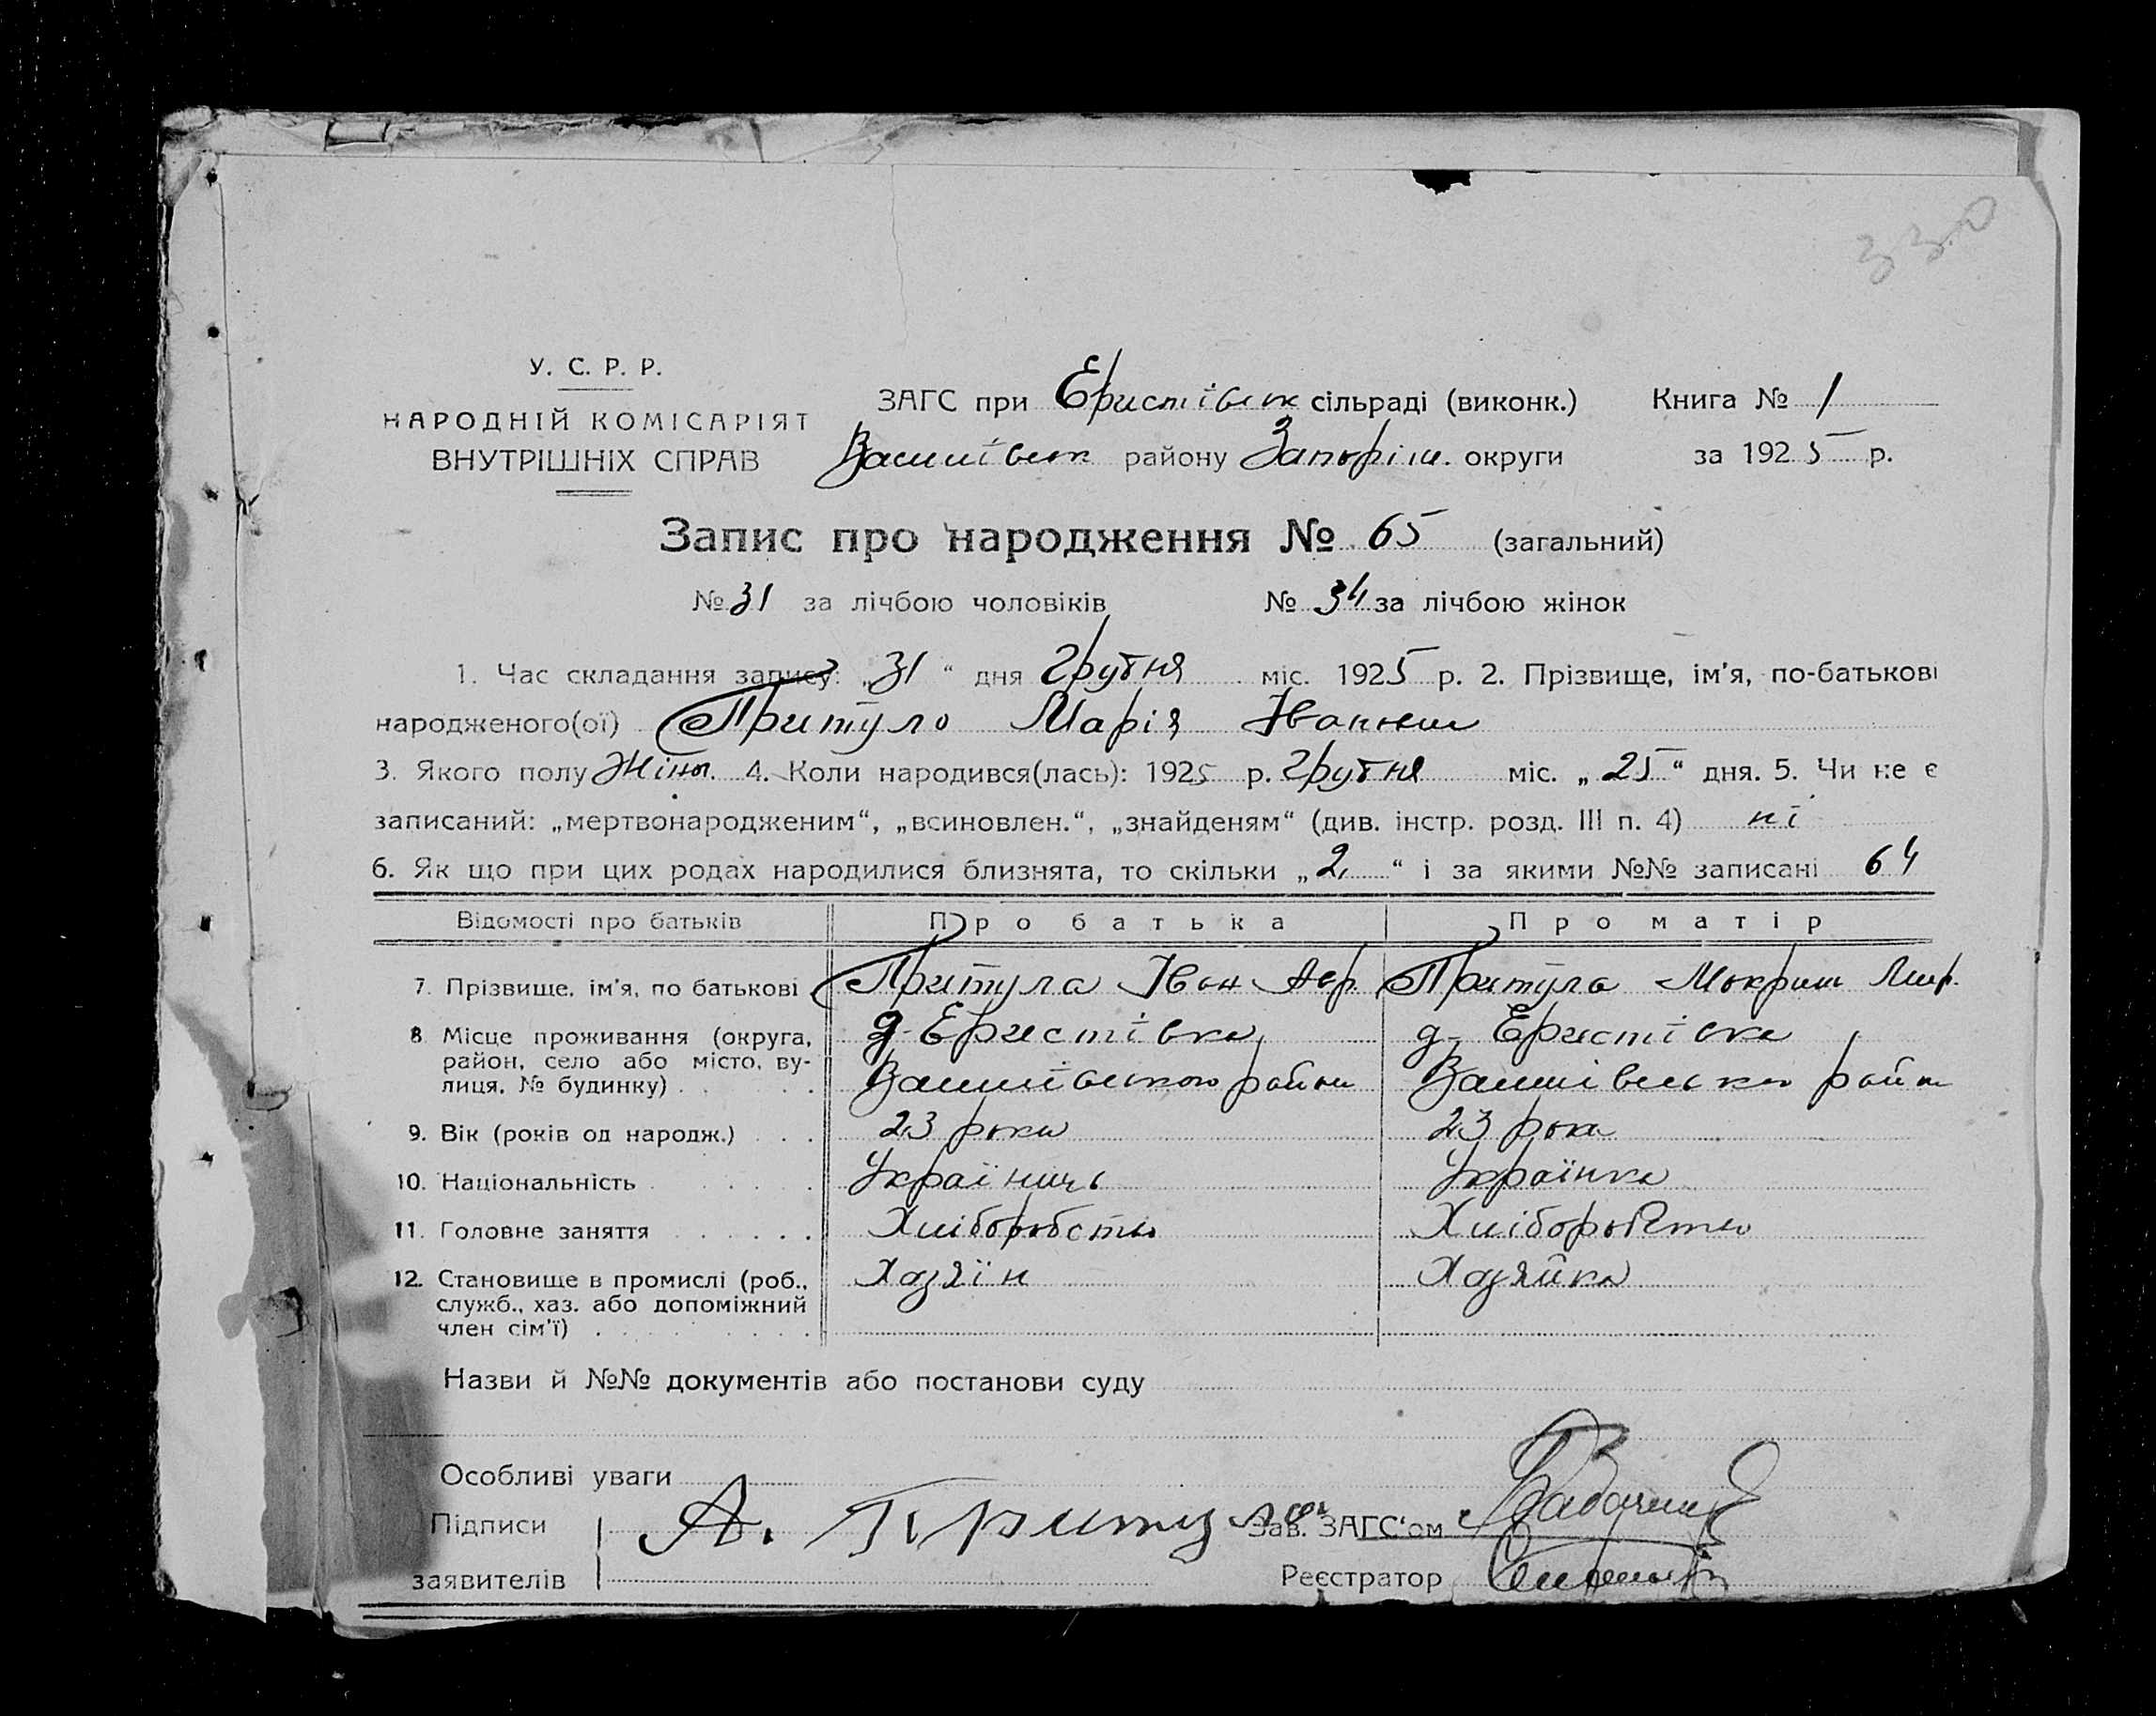 330
У. С. Р. Р.
НАРОДНІЙ КОМІСАРІЯТ
ВНУТРІШНІХ СПРАВ
ЗАГС при Еристівськ сільраді (виконк.) Книга № 1
району Запоріж. округи за 1925 р.
Запис про народження № 65 (загальний)
№ 31 за лічбою чоловіків № 34 за лічбою жінок
1. Час складання запису: „31“ дня Грудня міс. 1925 р. 2. Прізвище, ім'я, по-батькові
народженого(ої) Притуло Марія
3. Якого полу Жіноч. 4. Коли народився(лась): 1925 р. Грудня міс. „25“ дня. 5. Чи не є
записаний: „мертвонародженим“, „всиновлен.“, „знайденям“ (див. інстр. розд. III п. 4) ні
6. Як що при цих родах народилися близнята, то скільки „2“ і за якими №№ записані 64
Відомості про батьків Про батька Про матір
7. Прізвище, ім'я, по батькові Притула Іван Притула
8 Місце проживання (округа, район, село або місто, вулиця, № будинку) д. Еристівка д. Еристівка
району район
9. Вік (років од народж.) 23 роки 23 роки
10. Національність Українець Українка
11. Головне заняття Хліборобство Хліборобство
12. Становище в промислі (роб., служб., хаз. або допоміжний член сім'ї) Хазяїн Хазяйка
Назви й №№ документів або постанови суду
Особливі уваги
Підписи А. Притула Зав. ЗАГС'ом
заявителів Реєстратор